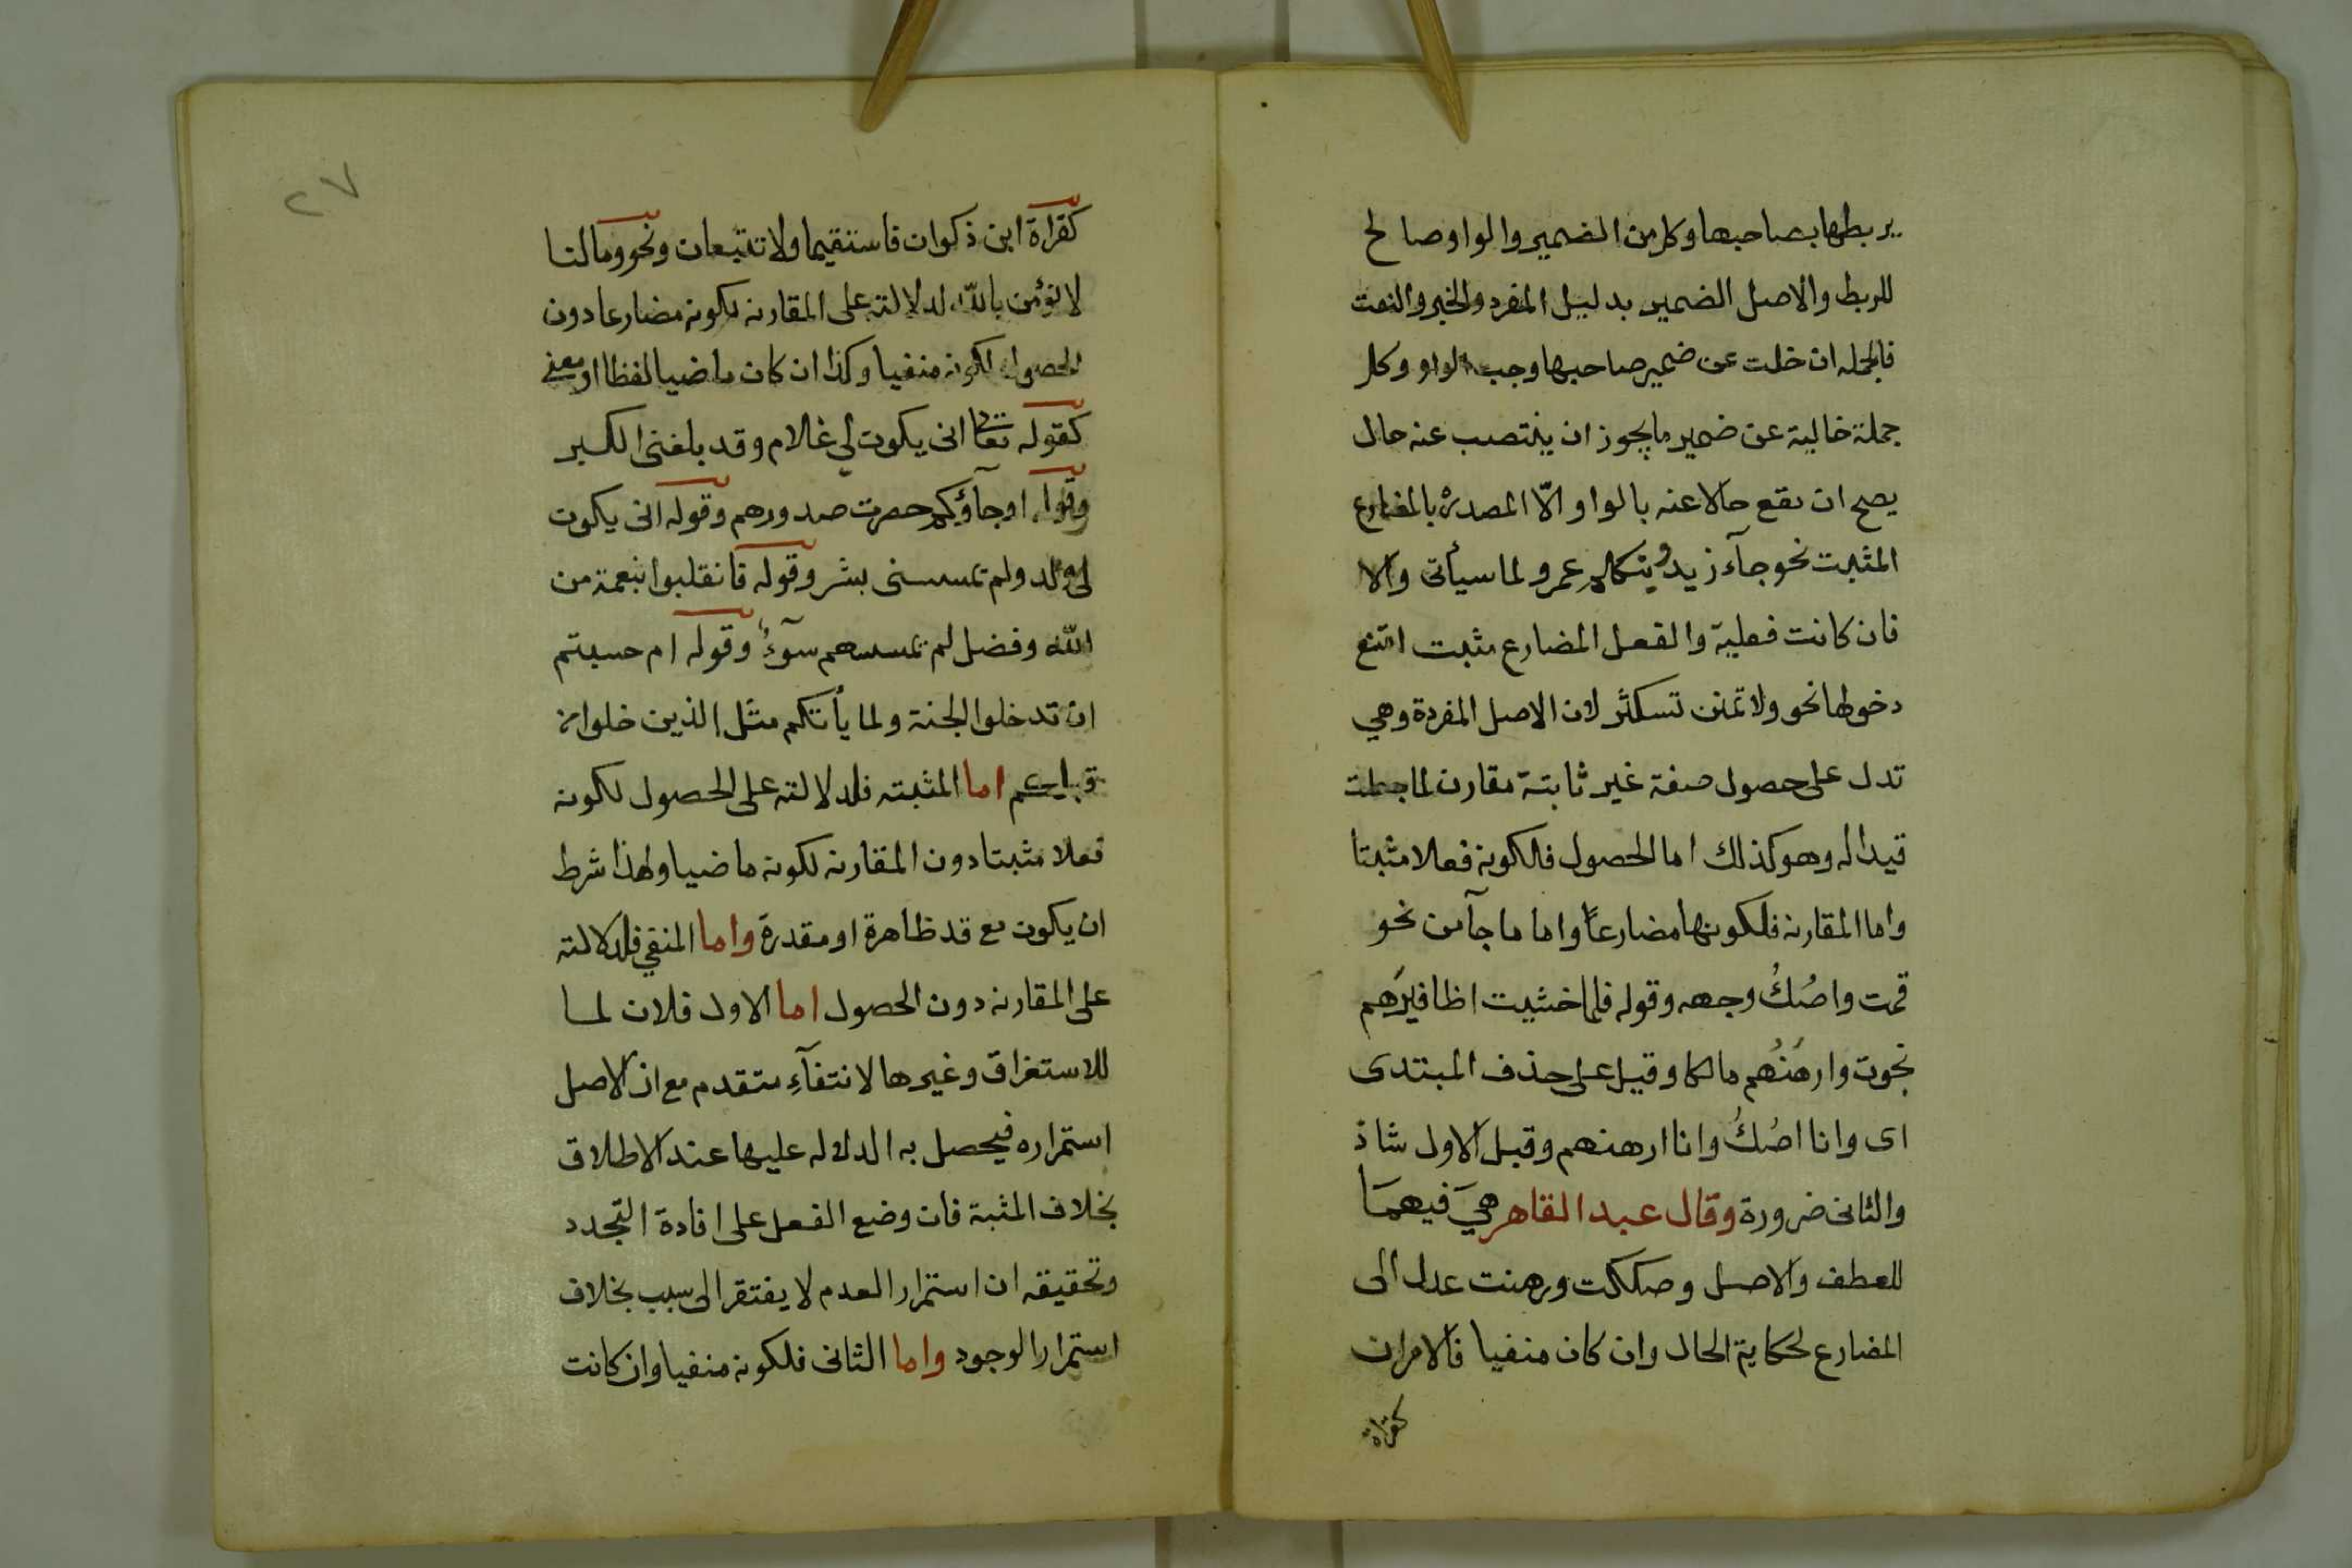 يربطها بصاحبها وكل من الضمير والواو صالح
للربط والاصل الضمير بدليل المفرد والخبر والنعت
فالجمله ان خلت عن ضمير صاحبها وجب الواو وكل
جملة خالية عن ضمير ما يجوز ان ينتصب عنه حال
يصح ان يقع حالا عنه بالواو الّا المصدرة بالمضارع
المثبت نحو جآء زيد ويتكلم عمرو لما سيأتى والا
فان كانت فعلية والفعل المضارع مثبت امتنع
دخولها نحو ولا تمنن تستكثر لان الاصل المفردة وهي
تدل على حصول صفة غير ثابتة مقارن لما جعلت
قيدا له وهو كذلك اما الحصول فلكونه فعلا مثبتا
واما المقارنه فلكونها مضارعاً واما ما جآ من نحو
قمت واصُكُ وجهه وقوله فلما خشيت اظافيرَهم
نجوت وارهَنُهم مالكا وقيل على حذف المبتدى
اى وانا اصُكُ وانا ارهنهم وقيل الاول شاذ
والثانى ضرورة وقال عبد القاهر هيَ فيهمَا
للعطف والاصل وصككت ورهنت عدل الى
المضارع لحكاية الحال وان كان منفيا فالامران
كقراة
٢٧
كقراة ابن ذكوان فاستقيما ولا تتبعان ونحو وما لنا
لا نؤمن باللّه لدلالته على المقارنه لكونه مضارعا دون
الحصول لكونه منفيا وكذا ان كان ماضيا لفظا او معنى
كقوله تعالى انى يكون لي غلام وقد بلغنى الكبر
وقوله او جآؤكم حصرت صدورهم وقوله انى يكون
لى ولد ولم تمسسنى بشر وقوله فانقلبوا بنعمة من
اللّه وفضل لم تمسسهم سوٓءٌ وقوله ام حسبتم
ان تدخلوا الجنة ولما يأتكم مثل الذين خلوا من
قبلكم اما المثبته فلدلالته على الحصول لكونه
فعلا مثبتا دون المقارنه لكونه ماضيا ولهذا شرط
ان يكون مع قد ظاهرة او مقدرة واما المنفي فلدلالته
على المقارنه دون الحصول اما الاول فلان لما
للاستغراق وغيرها لانتفآءِ متقدم مع ان الاصل
استمراره فيحصل به الدلاله عليها عند الاطلاق
بخلاف المثبة فان وضع الفعل على افادة التجدد
وتحقيقه ان استمرار العدم لا يفتقر الى سبب بخلاف
استمرار الوجود واما الثانى فلكونه منفيا وان كانت